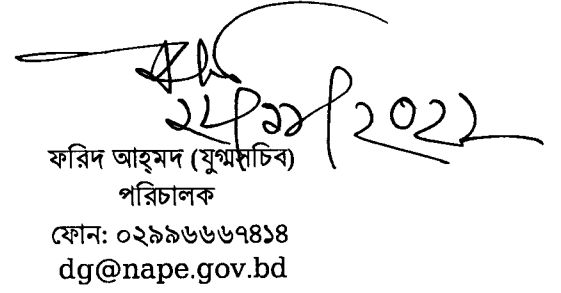 ২৮/১১/২০২২
ফরিদ আহ্‌মদ (যুগ্মসচিব)
পরিচালক
ফোন: ০২৯৯৬৬৬৭৪১৪
dg@nape.gov.bd